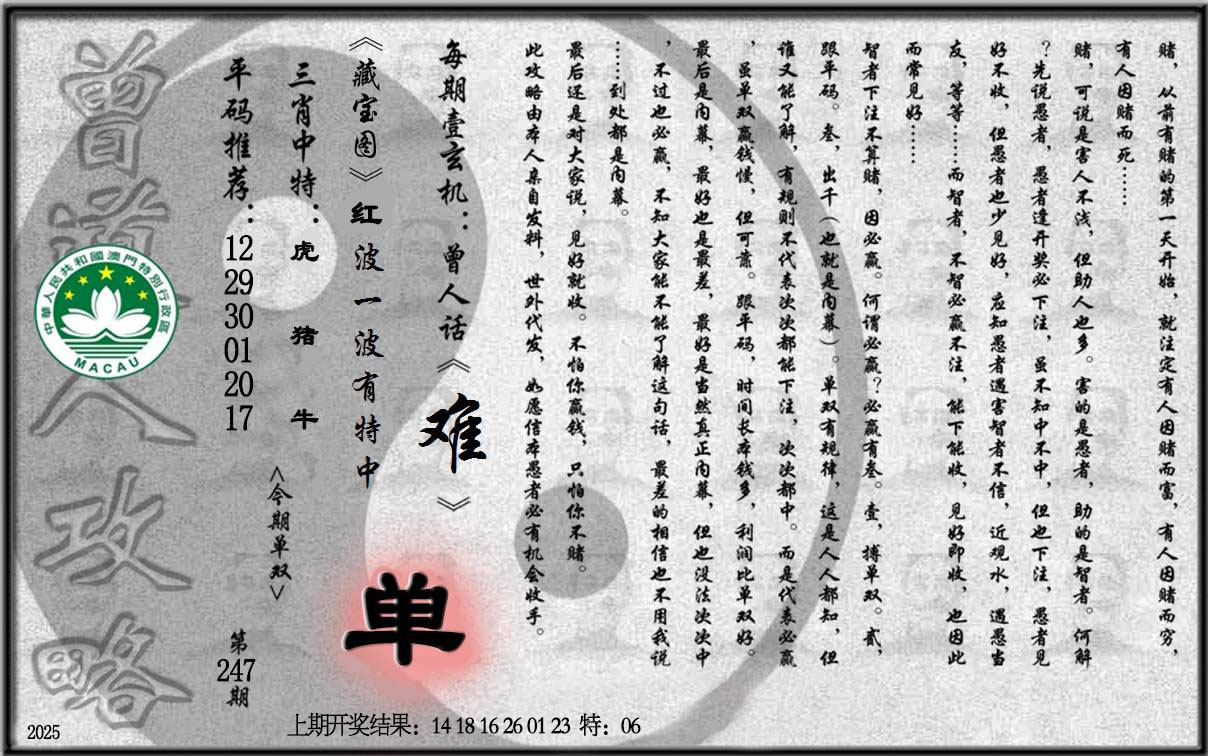 赌，从前有赌的第一天开始，就注定有人因赌而富，有人因赌而穷，
有人因赌而死……
赌，可说是害人不浅，但助人也多。害的是愚者，助的是智者。何解
？先说愚者，愚者逢开奖必下注，虽不知中不中，但也下注，愚者见
好不收，但愚者也少见好，应知愚者遇害智者不信，近观水，遇愚当
友，等等……而智者，不智必赢不注，能下能收，见好即收，也因此
而常见好……
智者下注不算赌，因必赢。何谓必赢？必赢有叁。壹，搏单双。贰，
跟平码。叁，出千（也就是内幕）。单双有规律，这是人人都知，但
谁又能了解，有规则不代表次次都能下注，次次都中。而是代表必赢
，虽单双赢钱慢，但可靠。跟平码，时间长本钱多，利润比单双好。
最后是内幕，最好也是最差，最好是当然真正内幕，但也没法次次中
，不过也必赢，不知大家能不能了解这句话，最差的相信也不用我说
……到处都是内幕。
最后还是对大家说，见好就收。不怕你赢钱，只怕你不赌。
此攻略由本人亲自发料，世外代发，如愿信本愚者必有机会收手。
每期壹玄机：曾人话《难》
《藏宝图》红波一波有特中
单
三肖中特：虎 猪 牛
<今期单双>
平码推荐：12 29 30 01 20 17
第247期
曾道人攻略
中華人民共和國澳門特別行政區
MACAU
上期开奖结果：14 18 16 26 01 23 特：06
2025